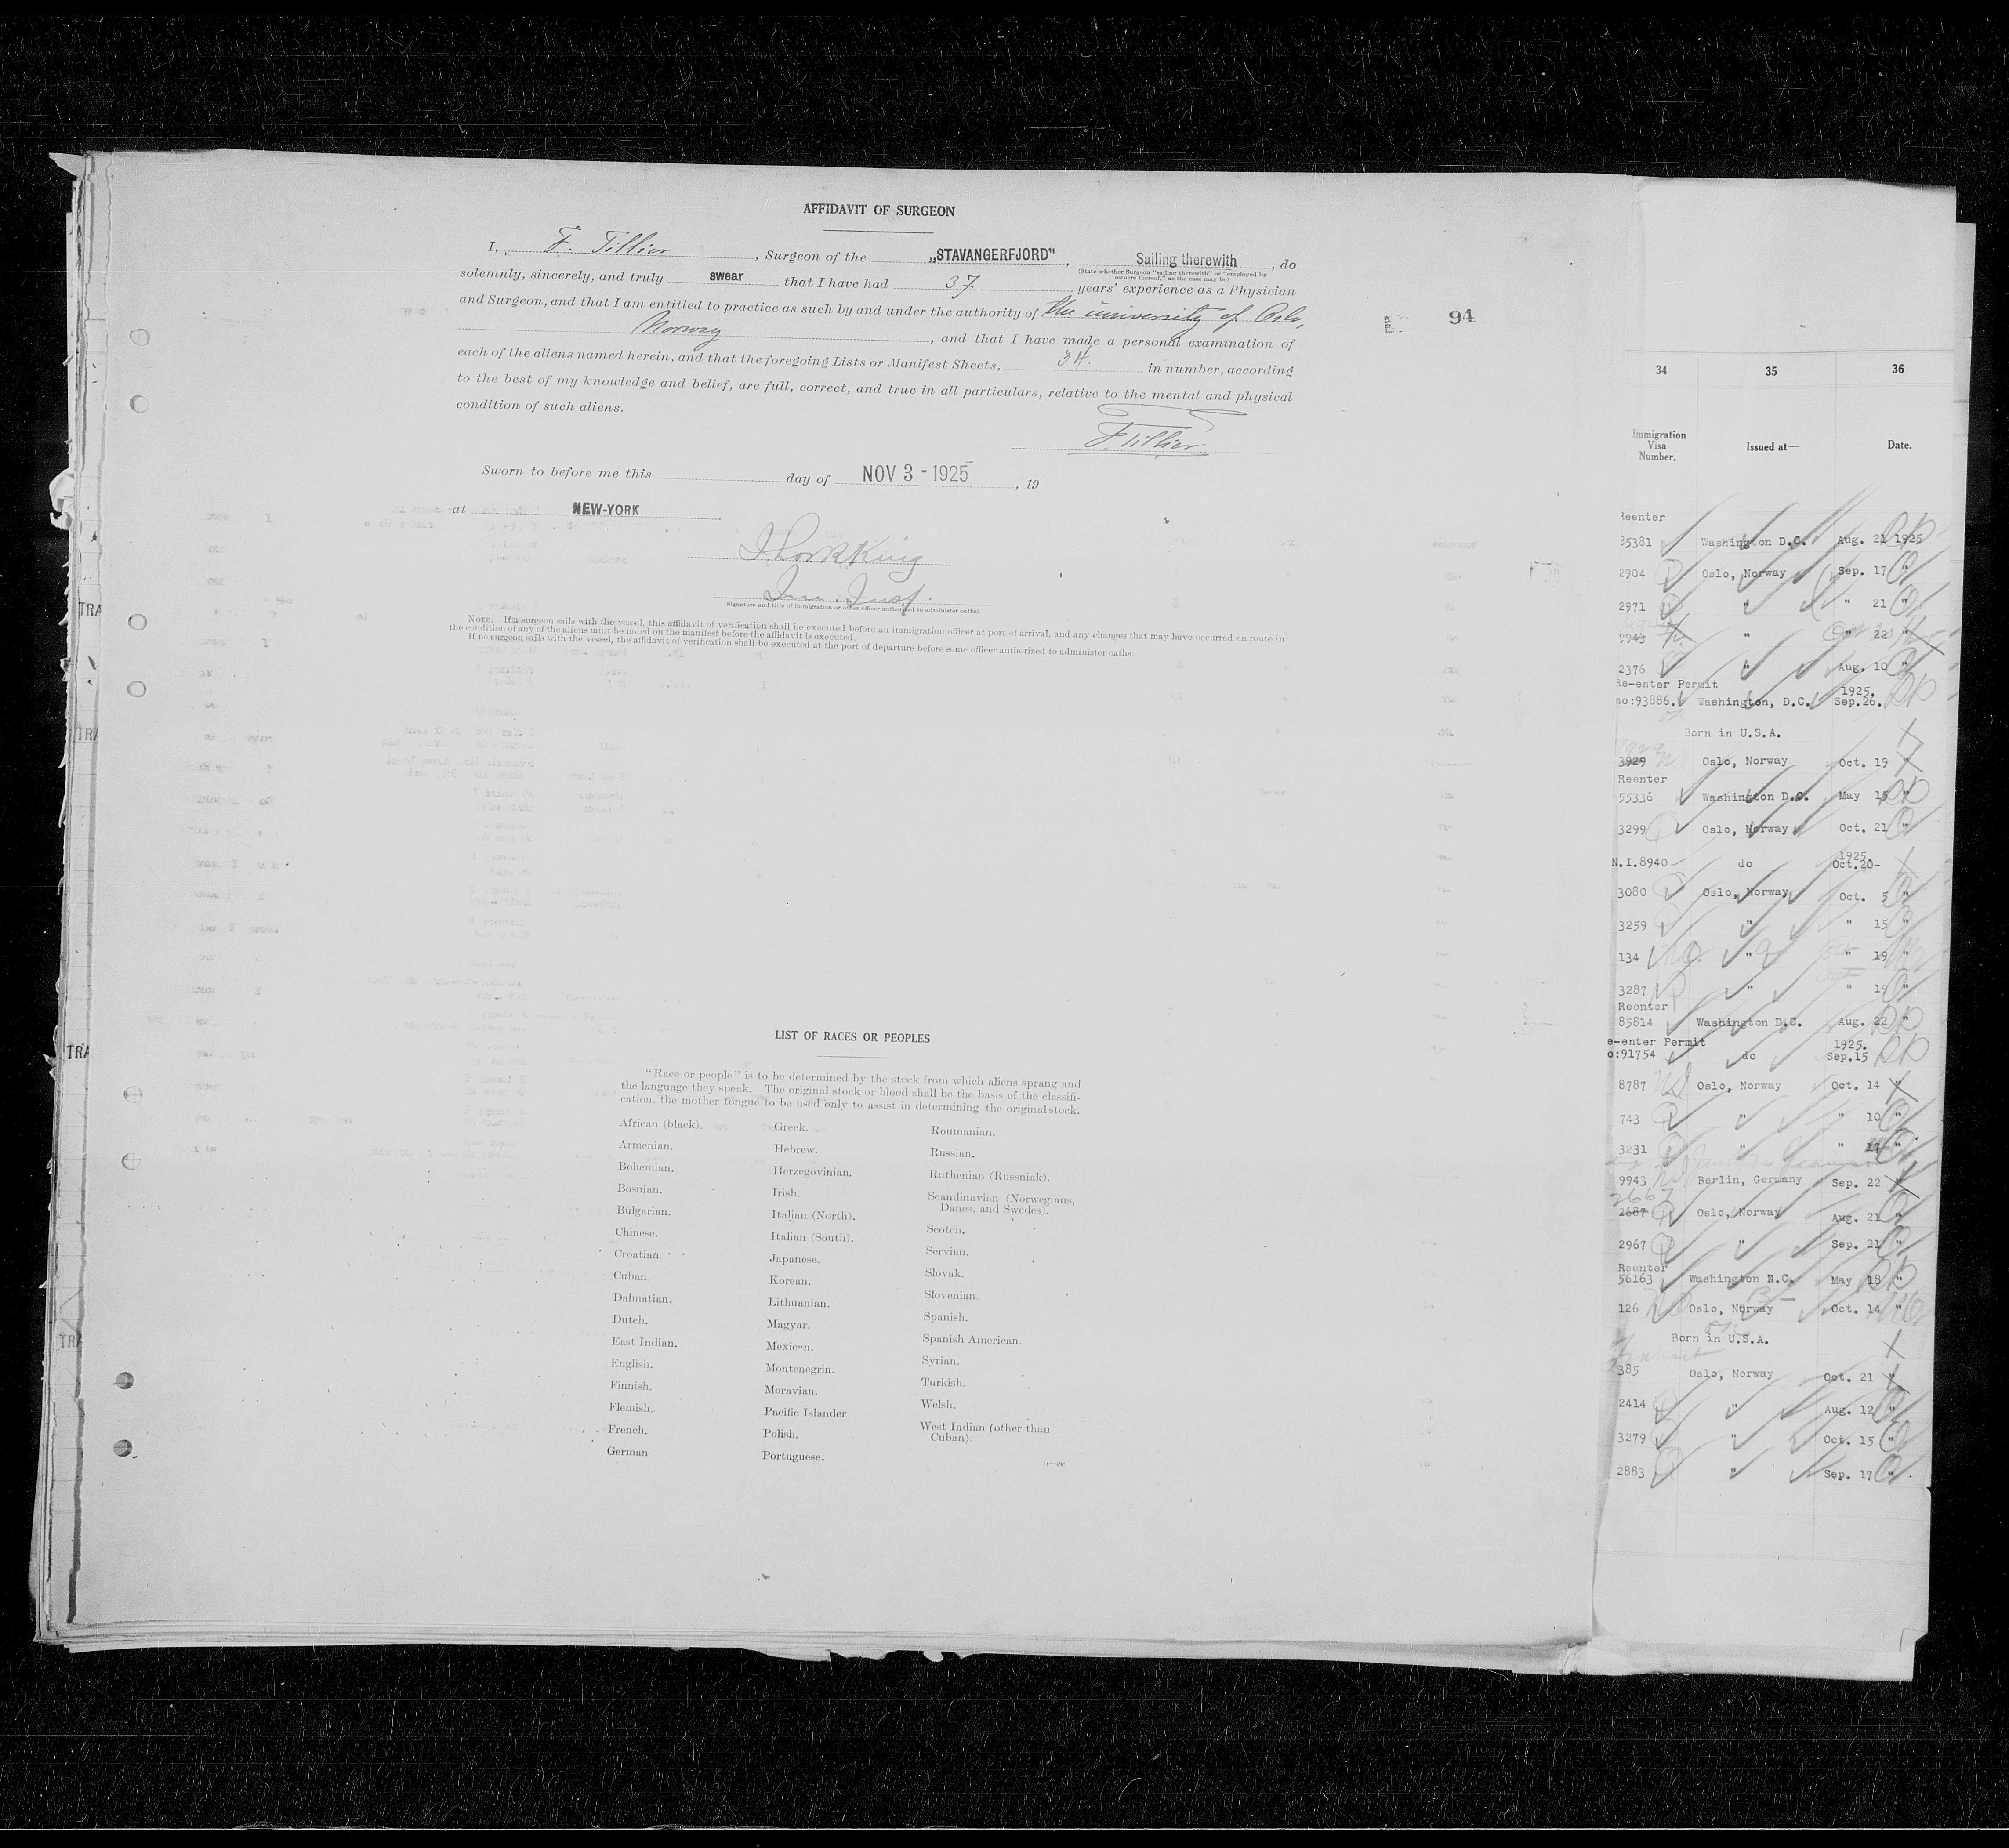 AFFIDAVIT OF SURGEON
I, F. Tillier, Surgeon of the „STAVANGERFJORD", Sailing therewith, do
(State whether Surgeon "sailing therewith" or "employed by
owners thereof," as the case may be)
solemnly, sincerely, and truly swear that I have had 37 years' experience as a Physician
and Surgeon, and that I am entitled to practice as such by and under the authority of the university of Oslo,
Norway, and that I have made a personal examination of
each of the aliens named herein, and that the foregoing Lists or Manifest Sheets, 34 in number, according
to the best of my knowledge and belief, are full, correct, and true in all particulars, relative to the mental and physical
condition of such aliens.
F. Tillier
Sworn to before me this day of NOV 3 - 1925, 19
at NEW-YORK
(Signature and title of immigration or other officer authorized to administer oaths)
NOTE.—If a surgeon sails with the vessel, this affidavit of verification shall be executed before an immigration officer at port of arrival, and any changes that may have occurred en route in
the condition of any of the aliens must be noted on the manifest before the affidavit is executed.
If no surgeon sails with the vessel, the affidavit of verification shall be executed at the port of departure before some officer authorized to administer oaths.
94
LIST OF RACES OR PEOPLES
"Race or people" is to be determined by the stock from which aliens sprang and
the language they speak. The original stock or blood shall be the basis of the classifi-
cation, the mother tongue to be used only to assist in determining the original stock.
African (black).
Armenian.
Bohemian.
Bosnian.
Bulgarian.
Chinese.
Croatian.
Cuban.
Dalmatian.
Dutch.
East Indian.
English.
Finnish.
Flemish.
French.
German
Greek.
Hebrew.
Herzegovinian.
Irish.
Italian (North).
Italian (South).
Japanese.
Korean.
Lithuanian.
Magyar.
Mexican.
Montenegrin.
Moravian.
Pacific Islander
Polish.
Portuguese.
Roumanian.
Russian.
Ruthenian (Russniak).
Scandinavian (Norwegians,
Danes, and Swedes).
Scotch.
Servian.
Slovak.
Slovenian.
Spanish.
Spanish American.
Syrian.
Turkish.
Welsh.
West Indian (other than
Cuban).
TRA
TRA
TRA
TRA
34 35 36
Immigration
Visa
Number. Issued at— Date.
Reenter
85381 Washington D.C. Aug. 21 1925
2904 Oslo, Norway Sep. 17 "
2971 " " 21 "
9943 " " 22 "
2376 " Aug. 10 "
Re-enter Permit 1925.
no:93886. Washington, D.C. Sep.26.
Born in U.S.A.
3929 Oslo, Norway Oct. 19 "
Reenter
55336 Washington D.C. May 15 "
3299 Oslo, Norway Oct. 21 "
1925.
N.I.8940- do Oct.20-
3080 Oslo, Norway Oct. 5 "
3259 " " 15 "
134 " " 19 "
3287 " " 19 "
Reenter
85814 Washington D.C. Aug. 22 "
e-enter Permit 1925.
o:91754 do Sep.15
8787 Oslo, Norway Oct. 14 "
743 " " 10 "
3231 " "
9943 Berlin, Germany Sep. 22 "
2663
2687 Oslo, Norway Aug. 21 "
2967 " Sep. 21 "
Reenter
56163 Washington D.C. May 18 "
126 Oslo, Norway Oct. 14 "
Born in U.S.A.
385 Oslo, Norway Oct. 21 "
2414 " Aug. 12 "
3279 " Oct. 15 "
2883 " Sep. 17 "